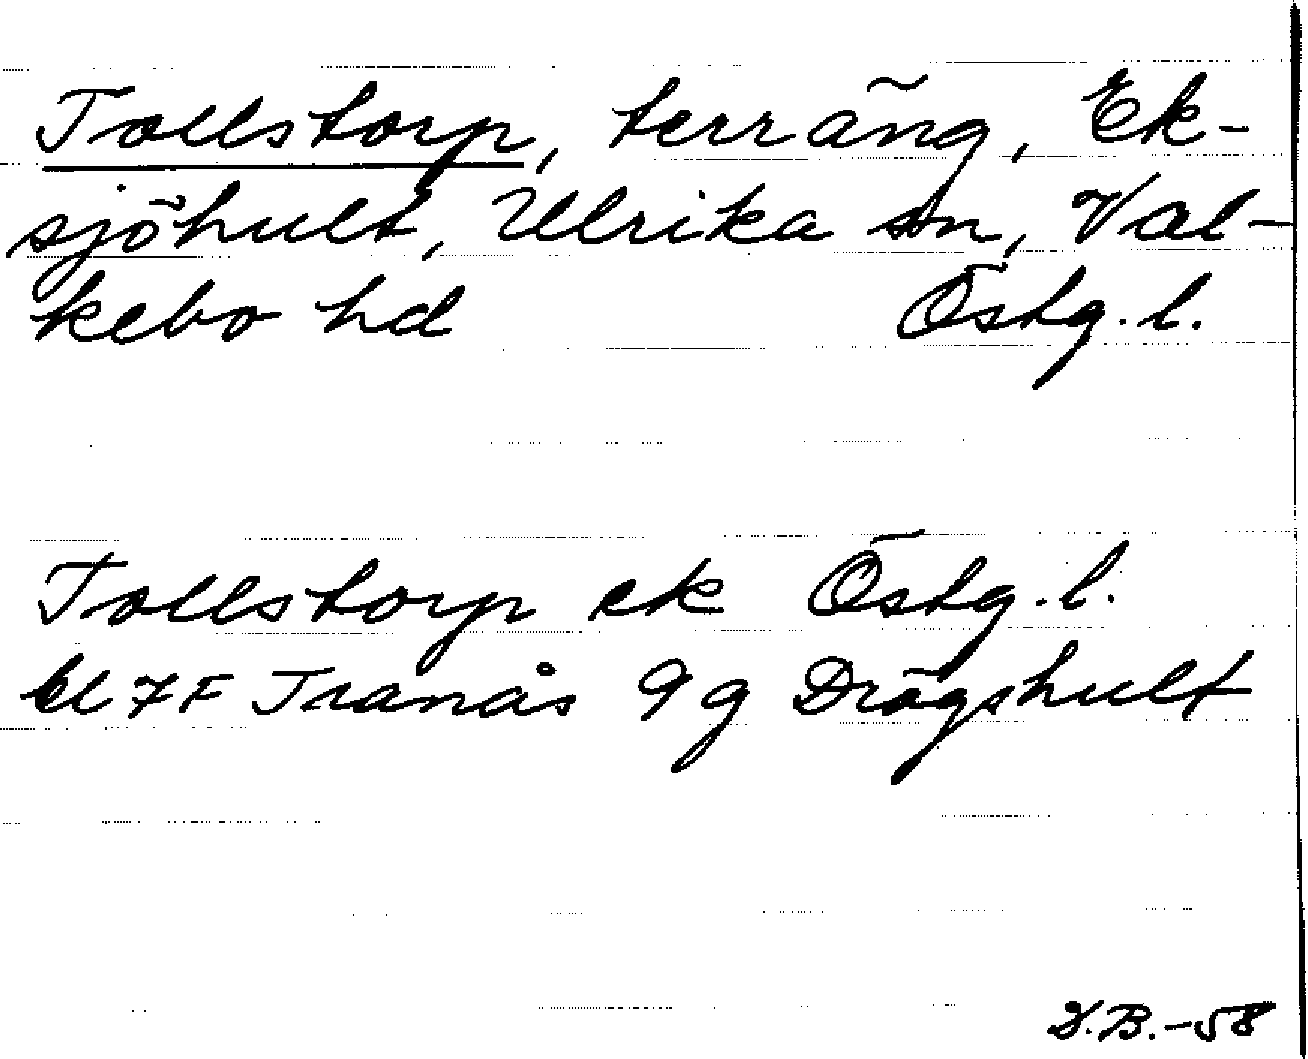 Tollstorp, terräng, Ek-
sjöhult, Ulrika sn, Val-
kebo hd Östg. l.
Tollstorp ek Östg. l.
bl 7F Tranås 9 g Drögshult
B.-58